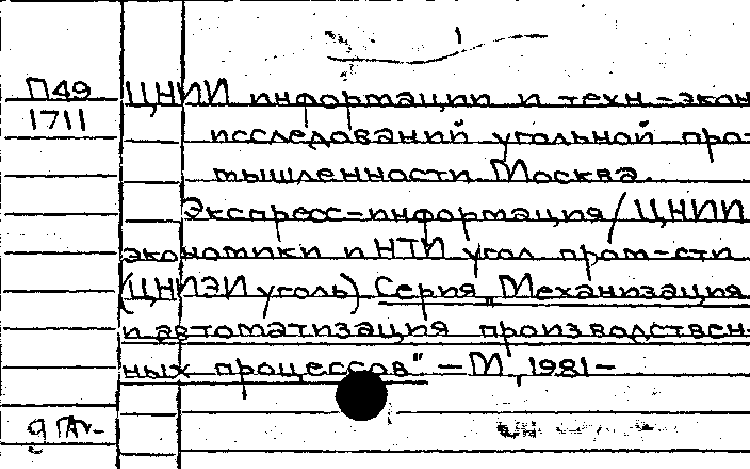 1
П49 ЦНИИ информации и техн-экон
1711 исследований угольной про-
мышленности. Москва.
Экспресс-информация/ЦНИИ
экономики и НТИ угол пром-сти
(ЦНИЭИуголь) Серия „Механизация
и автоматизация производствен-
ных процессов" – М, 1981 –